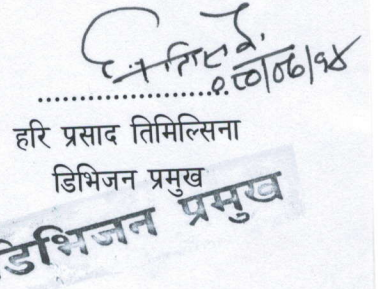 हरि प्रसाद तिमिल्सिना
डिभिजन प्रमुख
डिभिजन प्रमुख